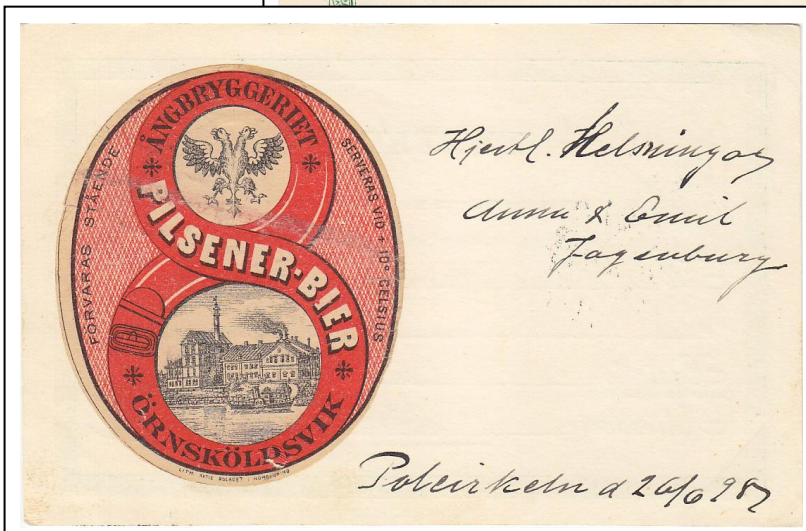 ÅNGBRYGGERIET
PILSENER-BIER
ÖRNSKÖLDSVIK
FÖRVARAS STÅENDE
SERVERAS VID + 10° CELSIUS
LITH. AKTIE BOLAGET I NORRKÖPING
Hjertl. Helsningar
Anna & Emil
Fagenburg
Polcirkeln d 26/6 98